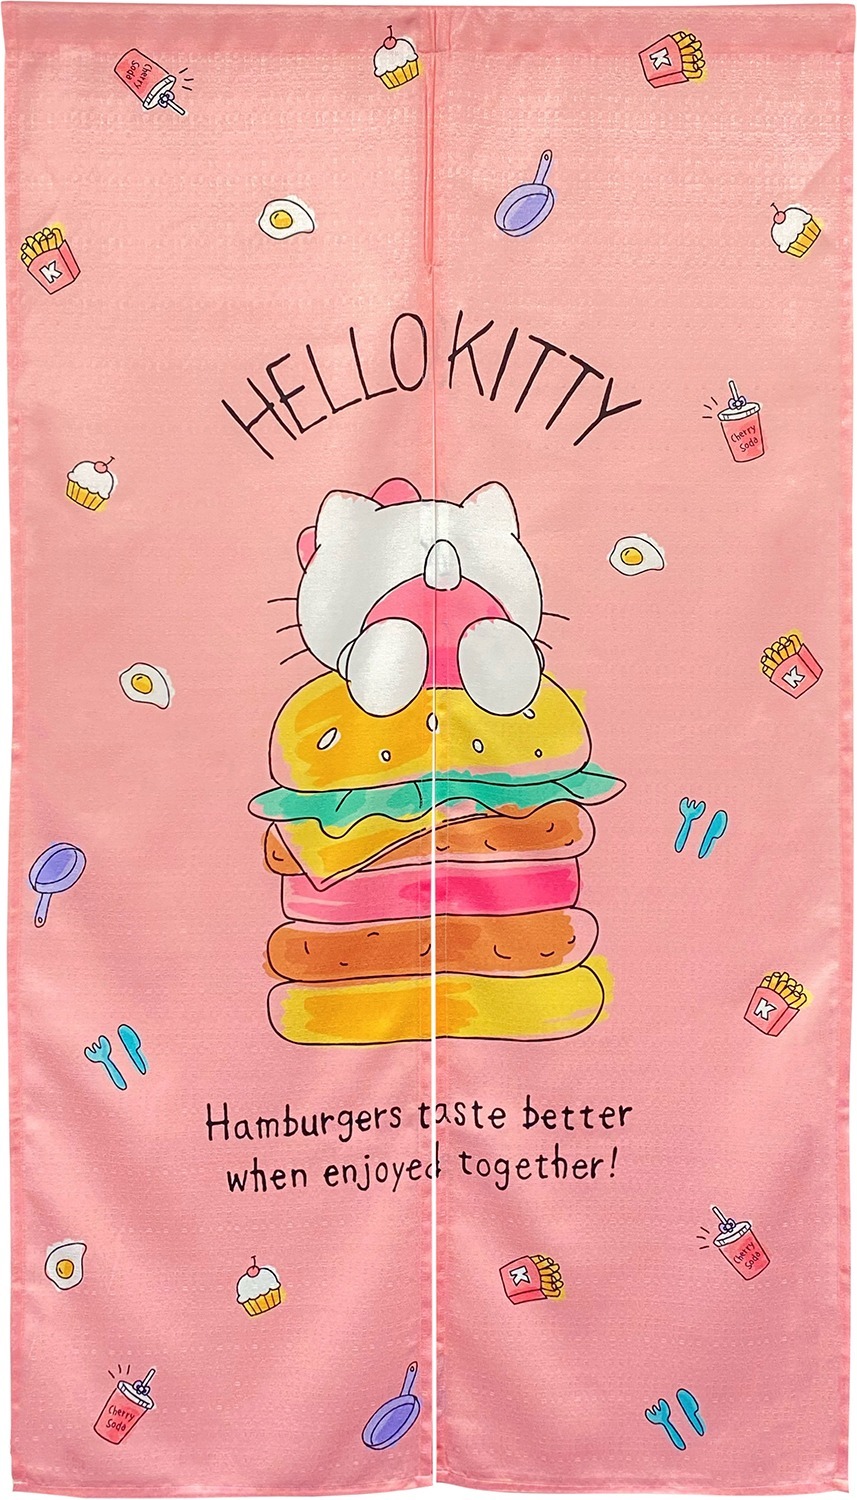 Cherry
Soda
K
K
HELLO KITTY
Cherry
Soda
K
K
Hamburgers taste better
when enjoyed together!
Cherry
Soda
K
Cherry
Soda